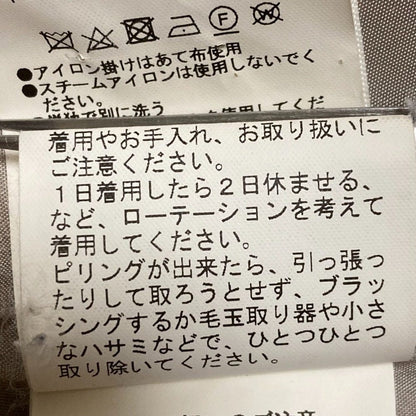 ●アイロン掛けはあて布使用
●スチームアイロンは使用しないでく
ださい。
着用やお手入れ、お取り扱いに
ご注意ください。
1日着用したら2日休ませる、
など、ローテーションを考えて
着用してください。
ピリングが出来たら、引っ張っ
たりして取ろうとせず、ブラッ
シングするか毛玉取り器や小さ
なハサミなどで、ひとつひとつ
取り除いてください。